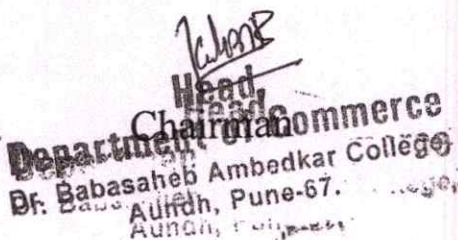 Head,
Chairman
Department of Commerce
Dr. Babasaheb Ambedkar College
Aundh, Pune-67.